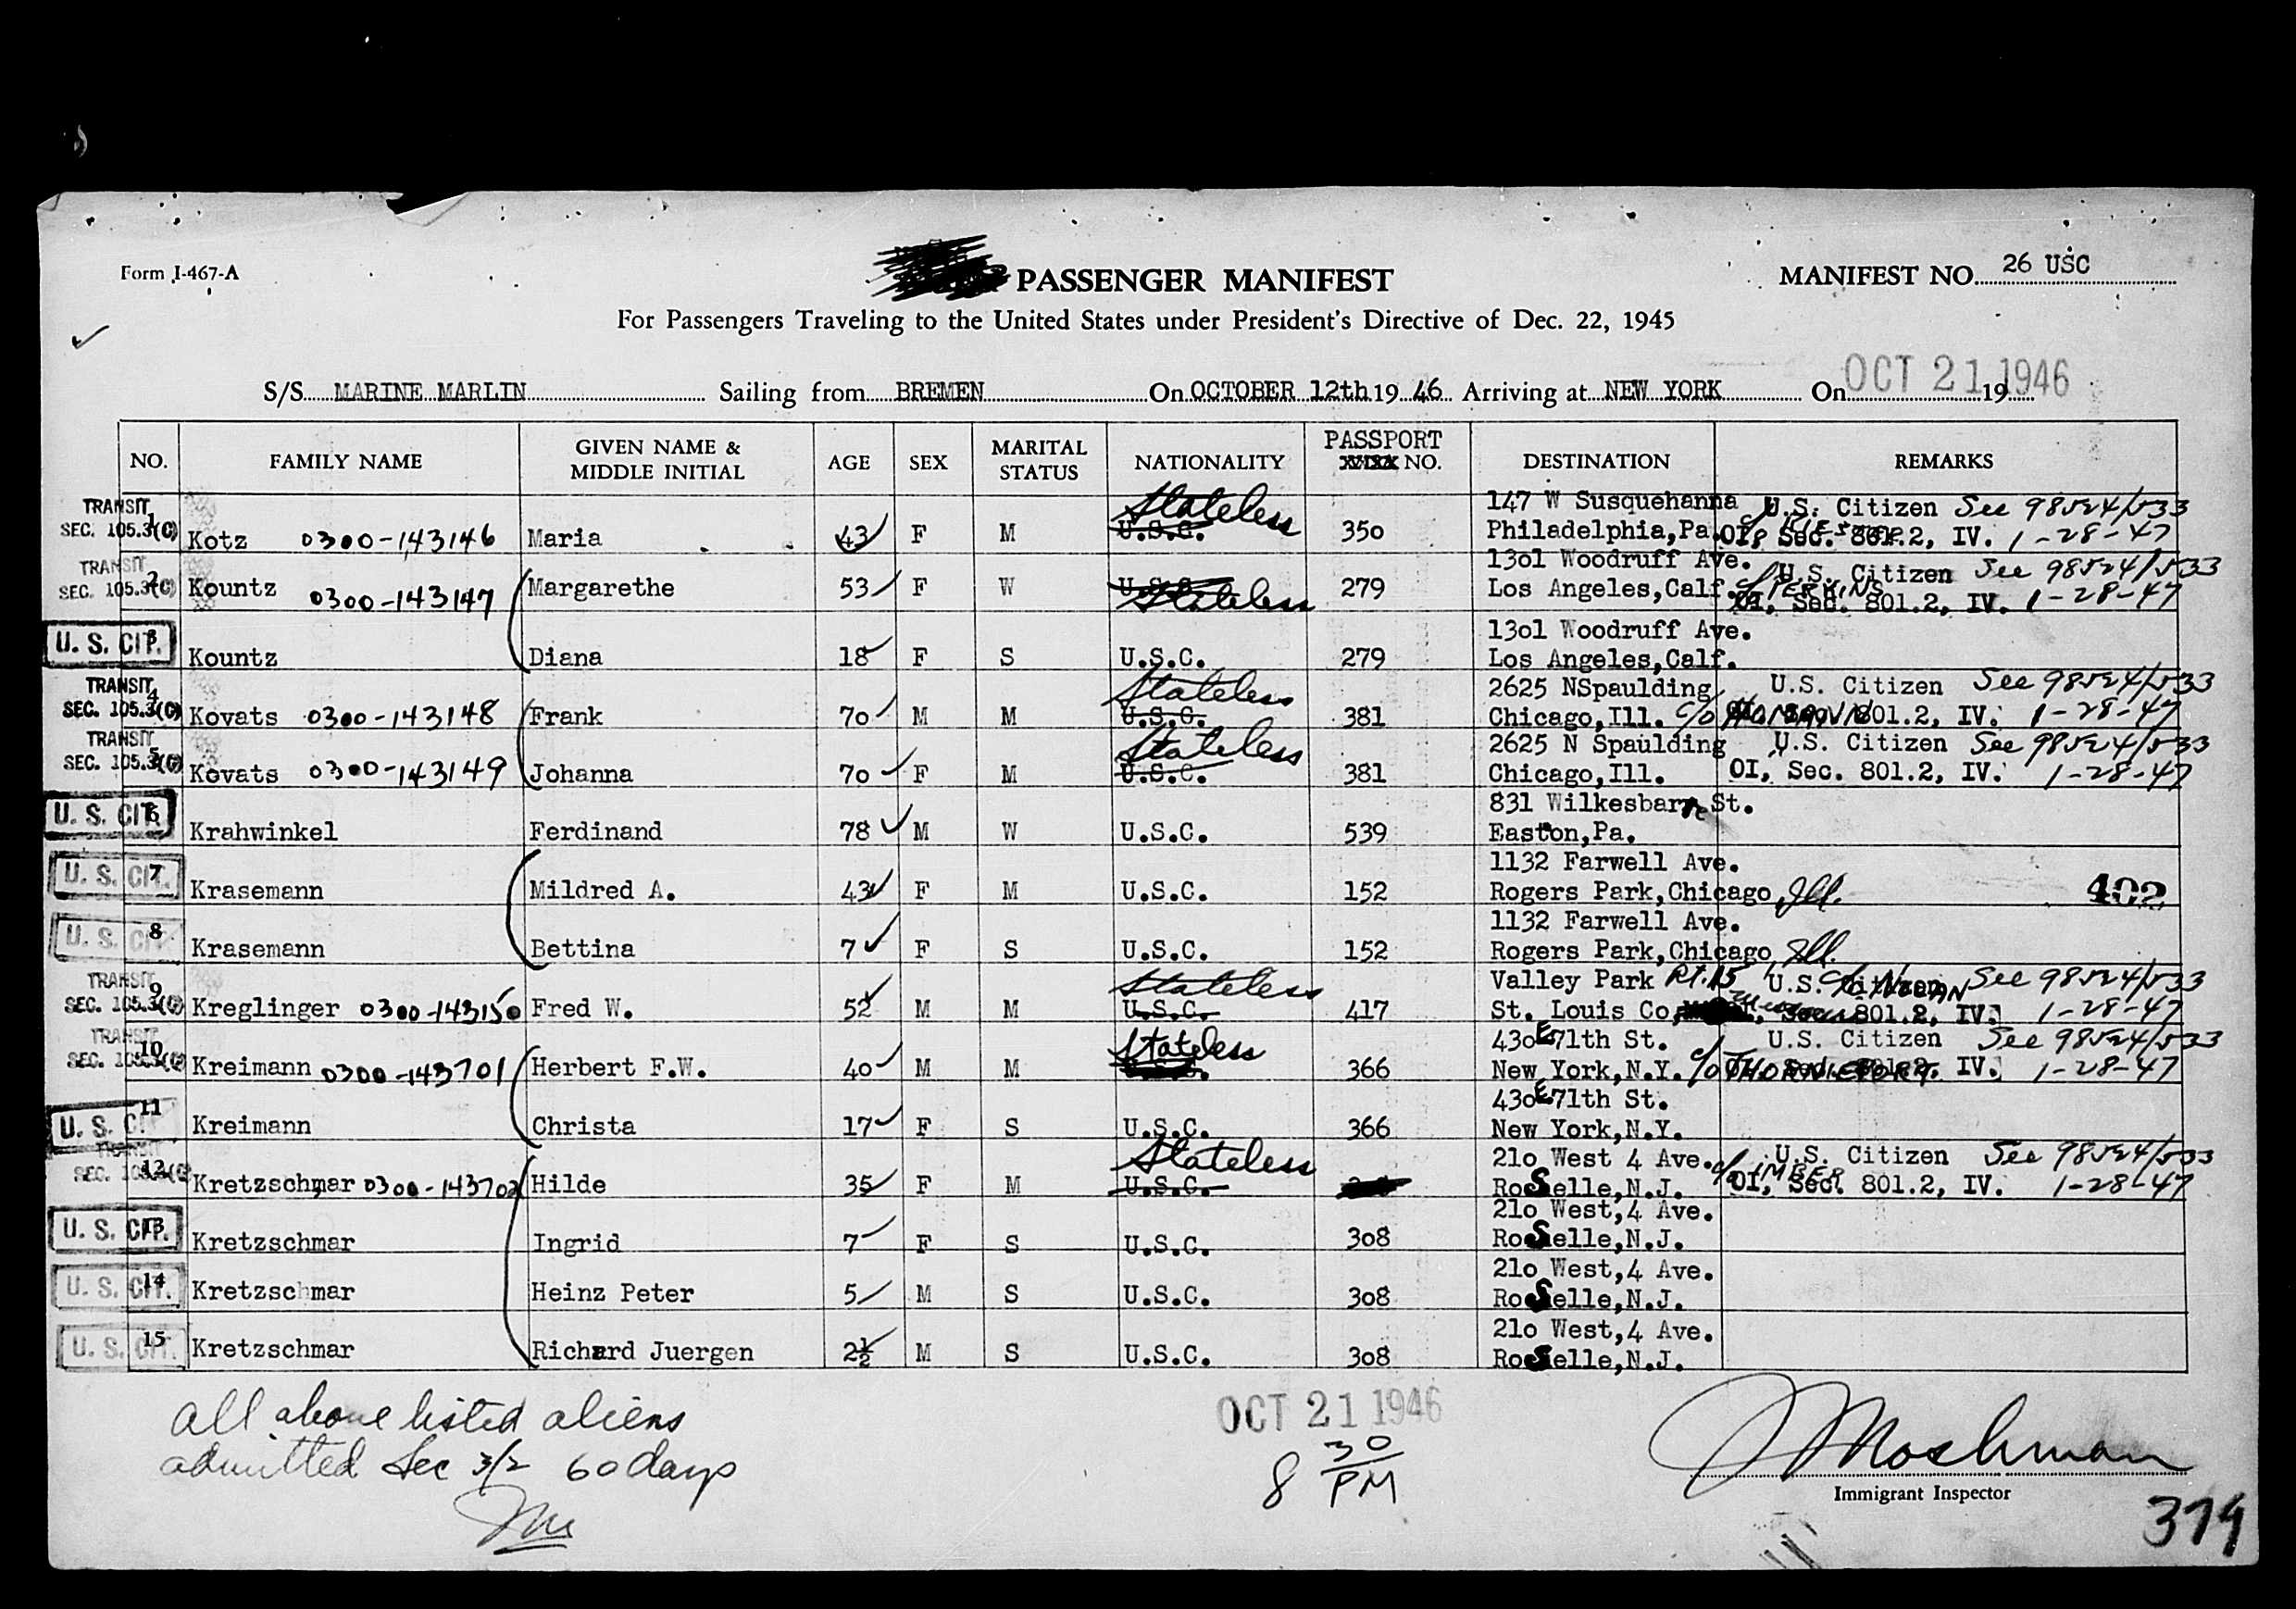 Form I-467-A
PASSENGER MANIFEST
MANIFEST NO. 26 USC
For Passengers Traveling to the United States under President's Directive of Dec. 22, 1945
S/S MARINE MARLIN Sailing from BREMEN On OCTOBER 12th 19 46 Arriving at NEW YORK On OCT 21 1946 19
NO. FAMILY NAME GIVEN NAME & MIDDLE INITIAL AGE SEX MARITAL STATUS NATIONALITY PASSPORT NO. DESTINATION REMARKS
TRANSIT Stateless 147 W Susquehanna U.S. Citizen See 98524/533
SEC. 105.3(C) 1 Kotz 0300-143146 Maria 43 F M U.S.C. 350 Philadelphia,Pa. OI, Sec. 801.2, IV. 1-28-47
TRANSIT 1301 Woodruff Ave. U.S. Citizen See 98524/533
SEC. 105.3(C) 2 Kountz 0300-143147 Margarethe 53 F W U.S.C. Stateless 279 Los Angeles,Calf. c/o PERKINS OI, Sec. 801.2, IV. 1-28-47
1301 Woodruff Ave.
U. S. CIT. 3 Kountz Diana 18 F S U.S.C. 279 Los Angeles,Calf.
TRANSIT Stateless 2625 NSpaulding U.S. Citizen See 98524/533
SEC. 105.3(C) 4 Kovats 0300-143148 Frank 70 M M U.S.C. 381 Chicago,Ill. c/o 801.2, IV. 1-28-47
TRANSIT Stateless 2625 N Spaulding U.S. Citizen See 98524/533
SEC. 105.3(C) 5 Kovats 0300-143149 Johanna 70 F M U.S.C. 381 Chicago,Ill. OI, Sec. 801.2, IV. 1-28-47
831 Wilkesbarre St.
U. S. CIT. 6 Krahwinkel Ferdinand 78 M W U.S.C. 539 Easton,Pa.
1132 Farwell Ave.
U. S. CIT. 7 Krasemann Mildred A. 43 F M U.S.C. 152 Rogers Park,Chicago,Ill. 402
1132 Farwell Ave.
U. S. CIT. 8 Krasemann Bettina 7 F S U.S.C. 152 Rogers Park,Chicago Ill.
TRANSIT Stateless Valley Park Rt.15 U.S. Citizen See 98524/533
SEC. 105.3(C) 9 Kreglinger 0300-143150 Fred W. 52 M M U.S.C. 417 St. Louis Co, 801.2, IV. 1-28-47
TRANSIT Stateless 430E71th St. U.S. Citizen See 98524/533
SEC. 105.3(C) 10 Kreimann 0300-143701 Herbert F.W. 40 M M 366 New York,N.Y. c/o IV. 1-28-47
430E71th St.
U. S. CIT 11 Kreimann Christa 17 F S U.S.C. 366 New York,N.Y.
TRANSIT Stateless 210 West 4 Ave. c/o IMBER U.S. Citizen See 98524/533
SEC. 105.3(C) 12 Kretzschmar 0300-143702 Hilde 35 F M U.S.C. RoSelle,N.J. OI, Sec. 801.2, IV. 1-28-47
210 West,4 Ave.
U. S. CIT. 13 Kretzschmar Ingrid 7 F S U.S.C. 308 RoSelle,N.J.
210 West,4 Ave.
U. S. CIT. 14 Kretzschmar Heinz Peter 5 M S U.S.C. 308 RoSelle,N.J.
210 West,4 Ave.
U. S. CIT. 15 Kretzschmar Richard Juergen 2½ M S U.S.C. 308 RoSelle,N.J.
all above listed aliens
admitted Sec 3/2 60 days
OCT 21 1946
8 30 PM
Moshman
Immigrant Inspector
379